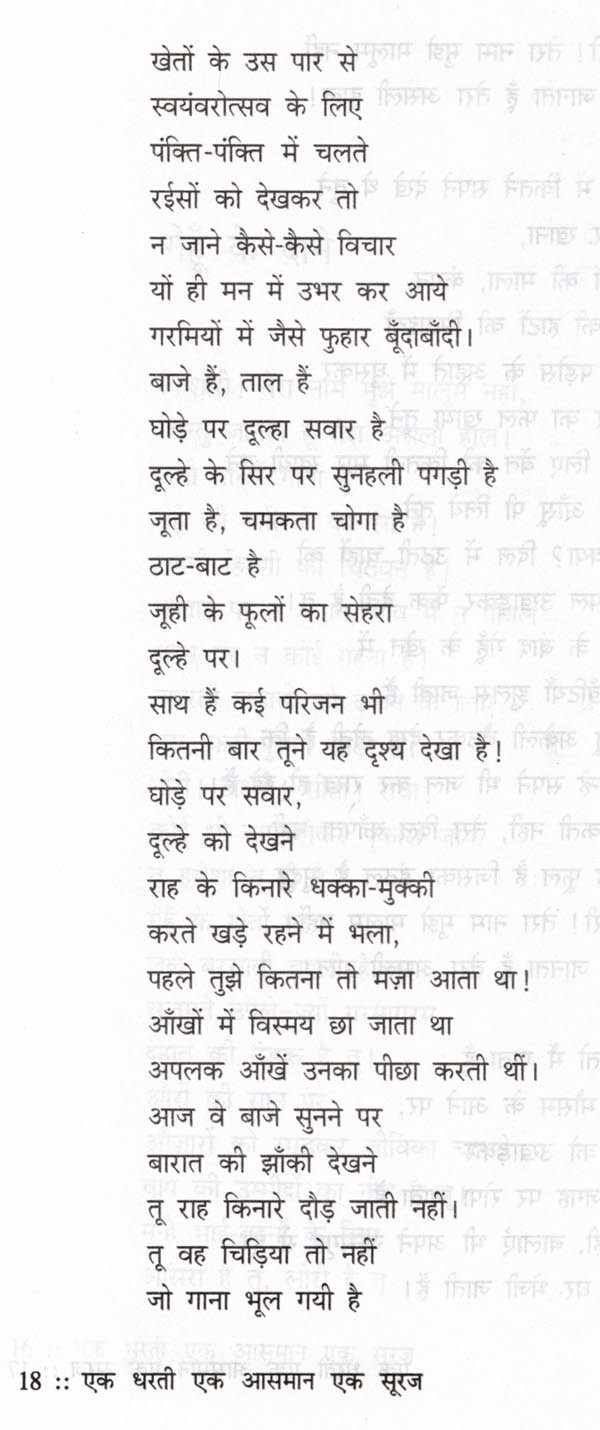 खेतों के उस पार से
स्वयंवरोत्सव के लिए
पंक्ति-पंक्ति में चलते
रईसों को देखकर तो
न जाने कैसे-कैसे विचार
यों ही मन में उभर कर आये
गरमियों में जैसे फुहार बूँदाबाँदी।
बाजे हैं, ताल हैं
घोड़े पर दूल्हा सवार है
दूल्हे के सिर पर सुनहली पगड़ी है
जूता है, चमकता चोगा है
ठाट-बाट है
जूही के फूलों का सेहरा
दूल्हे पर।
साथ हैं कई परिजन भी
कितनी बार तूने यह दृश्य देखा है!
घोड़े पर सवार,
दूल्हे को देखने
राह के किनारे धक्का-मुक्की
करते खड़े रहने में भला,
पहले तुझे कितना तो मज़ा आता था!
आँखों में विस्मय छा जाता था
अपलक आँखें उनका पीछा करती थीं।
आज वे बाजे सुनने पर
बारात की झाँकी देखने
तू राह किनारे दौड़ जाती नहीं।
तू वह चिड़िया तो नहीं
जो गाना भूल गयी है
18 :: एक धरती एक आसमान एक सूरज